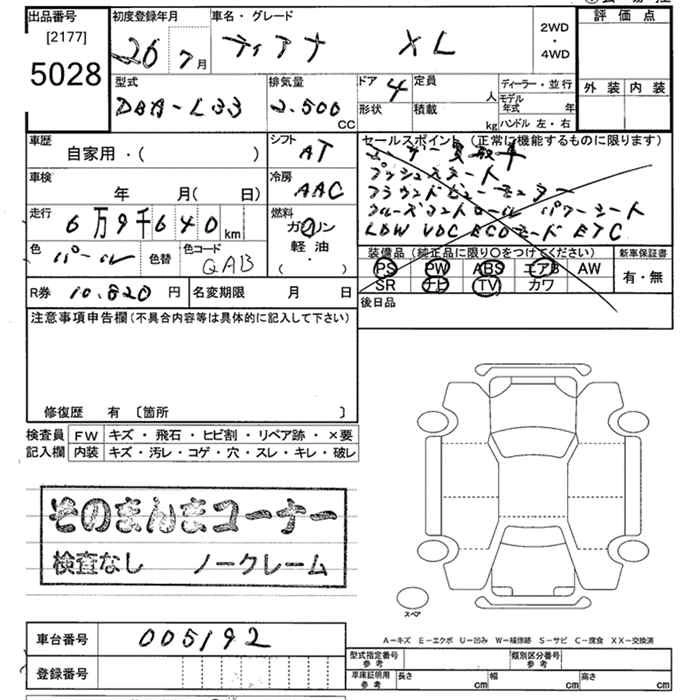 出品番号 初度登録年月 車名・グレード 評価点
[2177] 26 7月 ティアナ XL 2WD・4WD
5028
型式 排気量 ドア 4 定員 人 ディーラー・並行 外装 内装
DBA-L33 2.500 CC 形状 積載 kg モデル年式 年
ハンドル 左・右
車歴 シフト セールスポイント (正常に機能するものに限ります)
自家用・( ) AT
車検 冷房 プッシュスタート
年 月( 日) AAC アラウンドビューモニター
走行 燃料 クルーズコントロール パワーシート
6万9千640km ガソリン LDW VDC ECOモード ETC
色 パール 色替 色コード QAB 軽油・( )
装備品 (純正品に限り○をつけてください) 新車保証書
PS PW ABS エアB AW 有・無
SR ナビ TV カワ
R券 10.820 円 名変期限 月 日 後日品
注意事項申告欄(不具合内容等は具体的に記入して下さい)
修復歴 有 〔箇所 〕
検査員 FW キズ・飛石・ヒビ割・リペア跡・×要
記入欄 内装 キズ・汚レ・コゲ・穴・スレ・キレ・破レ
そのまんまコーナー
検査なし ノークレーム
スペア
A-キズ E-エクボ U-凹み W-補修跡 S-サビ C-腐食 XX-交換済
車台番号 005192
登録番号
型式指定番号 参考 類別区分番号 参考
車庫証明用 参考 長さ cm 幅 cm 高さ cm